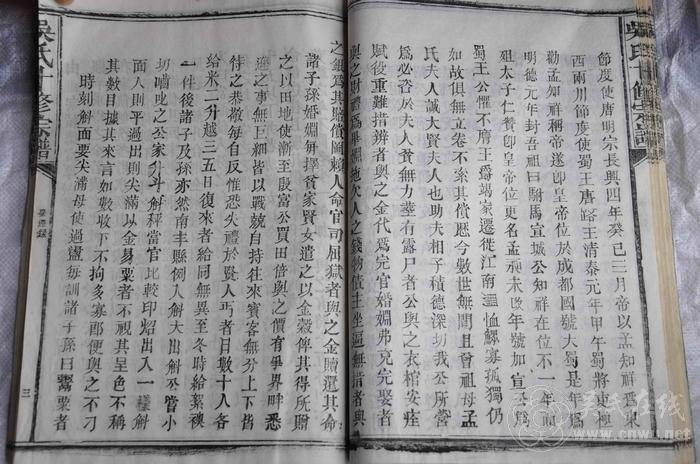 吳氏十修宗譜
節度使唐明宗長興四年癸巳二月帝以孟知祥爲東
西兩川節度使蜀王唐路王清泰元年甲午蜀將極
勸孟知祥稱帝遂即皇帝位於成都國號大蜀是年爲
明德元年封吾祖曰駙馬宣城公知祥在位不一年而
殂太子仁贊即皇帝位更名孟昶未改年號加宣公爲
蜀王公懼不膺王爵竭家遷徙江南溫恤鰥寡孤獨仍
如故俱無立卷不索其償歷今數世無間且曾祖母孟
氏夫人誠大賢夫人也助夫相子積德深切我公所嘗
爲必咨於夫人貧無力塟有露尸者公與之衣棺安瘞
賦役重難措辨者與之金代爲完官婚姻弗克完娶者
與之財禮爲畢姻施久人之錢物依士坐逼無措者與
之銀爲其賠償圖賴人命官司屈獄者與之金贖還其命
諸子孫婚姻毎擇貧家賢女遣之以金穀俾其得所贈
之以田地使漸至殷富公買田倍與之價有爭界畔悉
遜之事無巨細皆以戰兢自持往來賓客無分上下皆
待之恭敬毎自反惟恐失禮於賢人丐者日數十人各
給米二升越三五日復來者給同無異至冬時給絮襖
一件後諸子及孫亦然南丰縣例入斛大出斛公嘗小
切叱之公家升斗斛秤當官比較印烙出入一樣斛
面入則平過出則尖滿以金易粟者不視其呈色不稱
其數目據其來言如數收下不拘多寡即便與之不刁
時刻斛面要尖滿毋使過盪毎訓諸子孫曰鬻粟者
吳氏十修宗譜
三
吴氏在线
www.cnwu.net